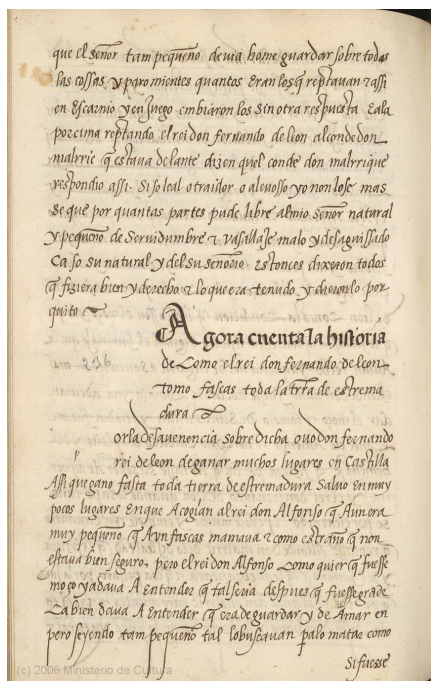 que el señor tam pequeño devia home guardar sobre todas
las cossas. y paro mientes quantos eran los q̃ reptavan ⁊ assi
en escarnio y en juego embiaron los sin otra respuesta. E a la
por cima reptando el rei don fernando de leon al conde don
malrric q̃ estava delante dizen q̃ el conde don malrrique
respondio assi. Si so leal o traidor o alevosso yo non lo se mas
se que por quantas partes pude libre al mio señor natural
y pequeño de servidumbre ⁊ vasallaje malo y desaguissado
Ca so su natural y del su señorio. Estonces dixeron todos
q̃ fiziera bien y derecho ⁊ lo que era tenudo y dieronlo por
quito
Agora cuenta la historia
236
de Como el rei don fernando de leon
tomo fascas toda la trr̃a de estrema
dura
or la desavenencia sobre dicha ovo don fernando
rei de leon de ganar muchos lugares en Castilla
Assi que gano fasta toda tierra de estremadura salvo en muy
pocos lugares en que Acogian al rei don Alfonso q̃ Aun era
muy pequeño q̃ Ayn fascas mamava ⁊ como estraño q̃ non
estava bien seguro. pero el rei don Alfonso como quier q̃ fuesse
moço ya dava A entender q̃ tal seria despues q̃ fuesse grãde
Ca bien dava A entender q̃ era de guardar y de Amar en
pero seyendo tam pequeño tal lo buscavan p̃a lo matar como
si fuesse
(c) 2006 Ministerio de Cultura